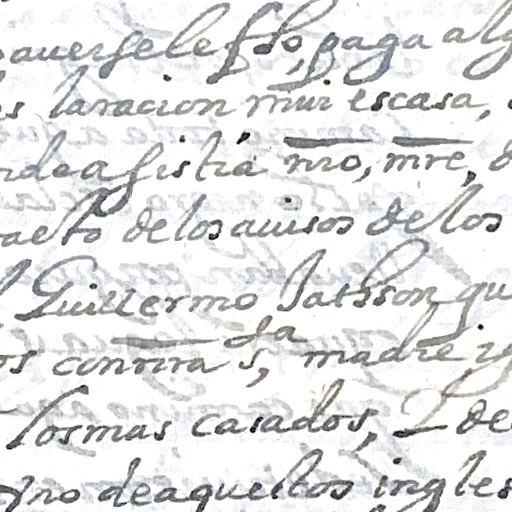 averse le s.to, paga alg
s la racion mui escasa,
nde asistia nro, mre, d
acto de los auisos de los
Guillermo Jatsson, qu
os con nra s.ta, madre yg
los mas casados, L de
no de aquellos ingles